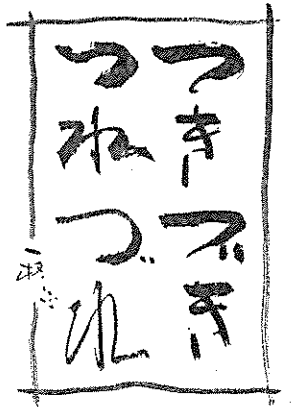 つきづき
つれづれ